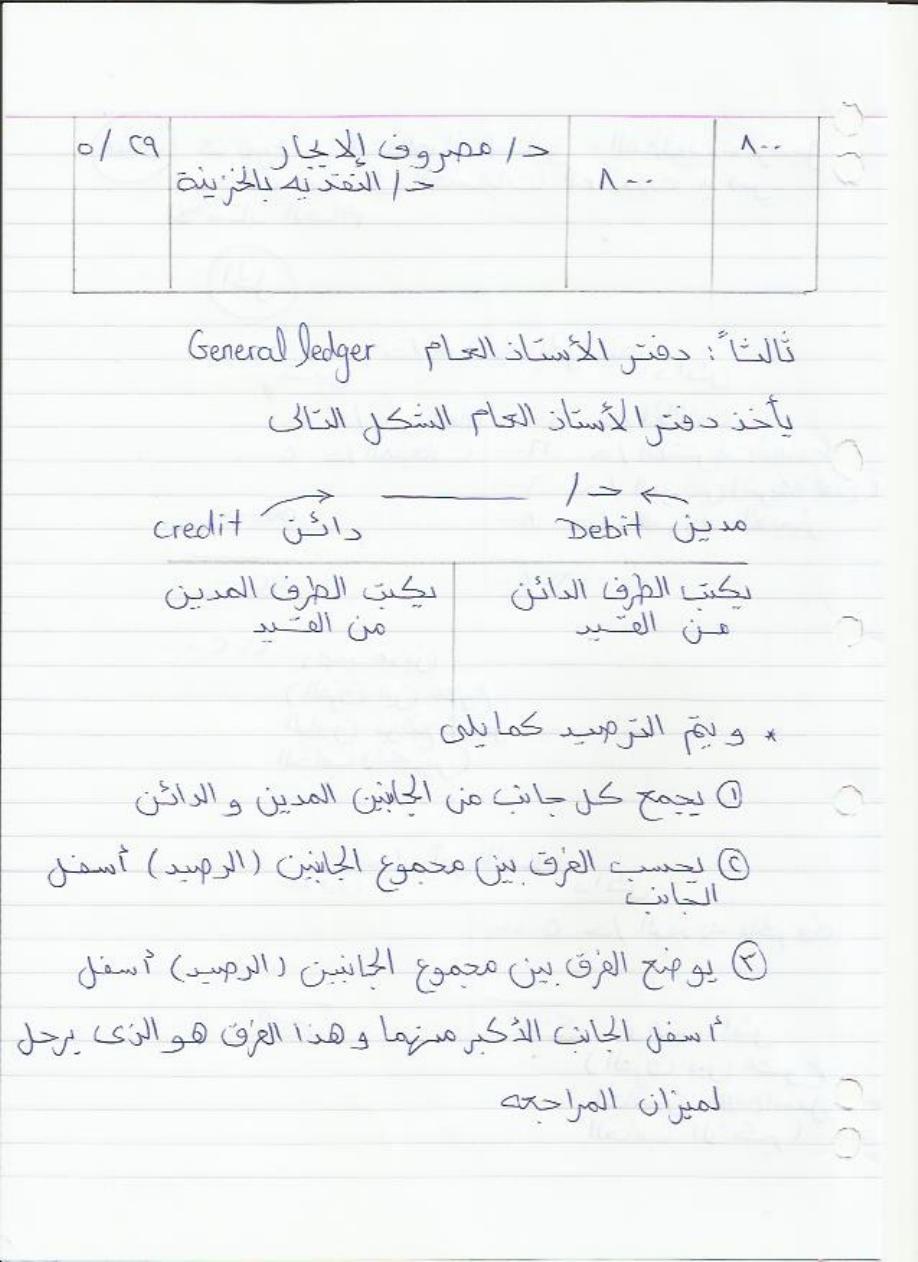 ٨٠٠ د/ مصروف الإيجار ٢٩/٥
٨٠٠ د/ النقديه بالخزينة
ثالثاً: دفتر الأستاذ العام General ledger
يأخذ دفتر الأستاذ العام الشكل التالى
مدين Debit ح/ دائن credit
يكتب الطرف الدائن من القيد
يكتب الطرف المدين من القيد
* ويتم الترصيد كمايلى
① يجمع كل جانب من الجانبين المدين والدائن
② يحسب الفرق بين مجموع الجانبين (الرصيد) أسفل
الجانب
③ يوضع الفرق بين مجموع الجانبين (الرصيد) أسفل
أسفل الجانب الأكبر منهما وهذا الفرق هو الذى يرحل
لميزان المراجعه